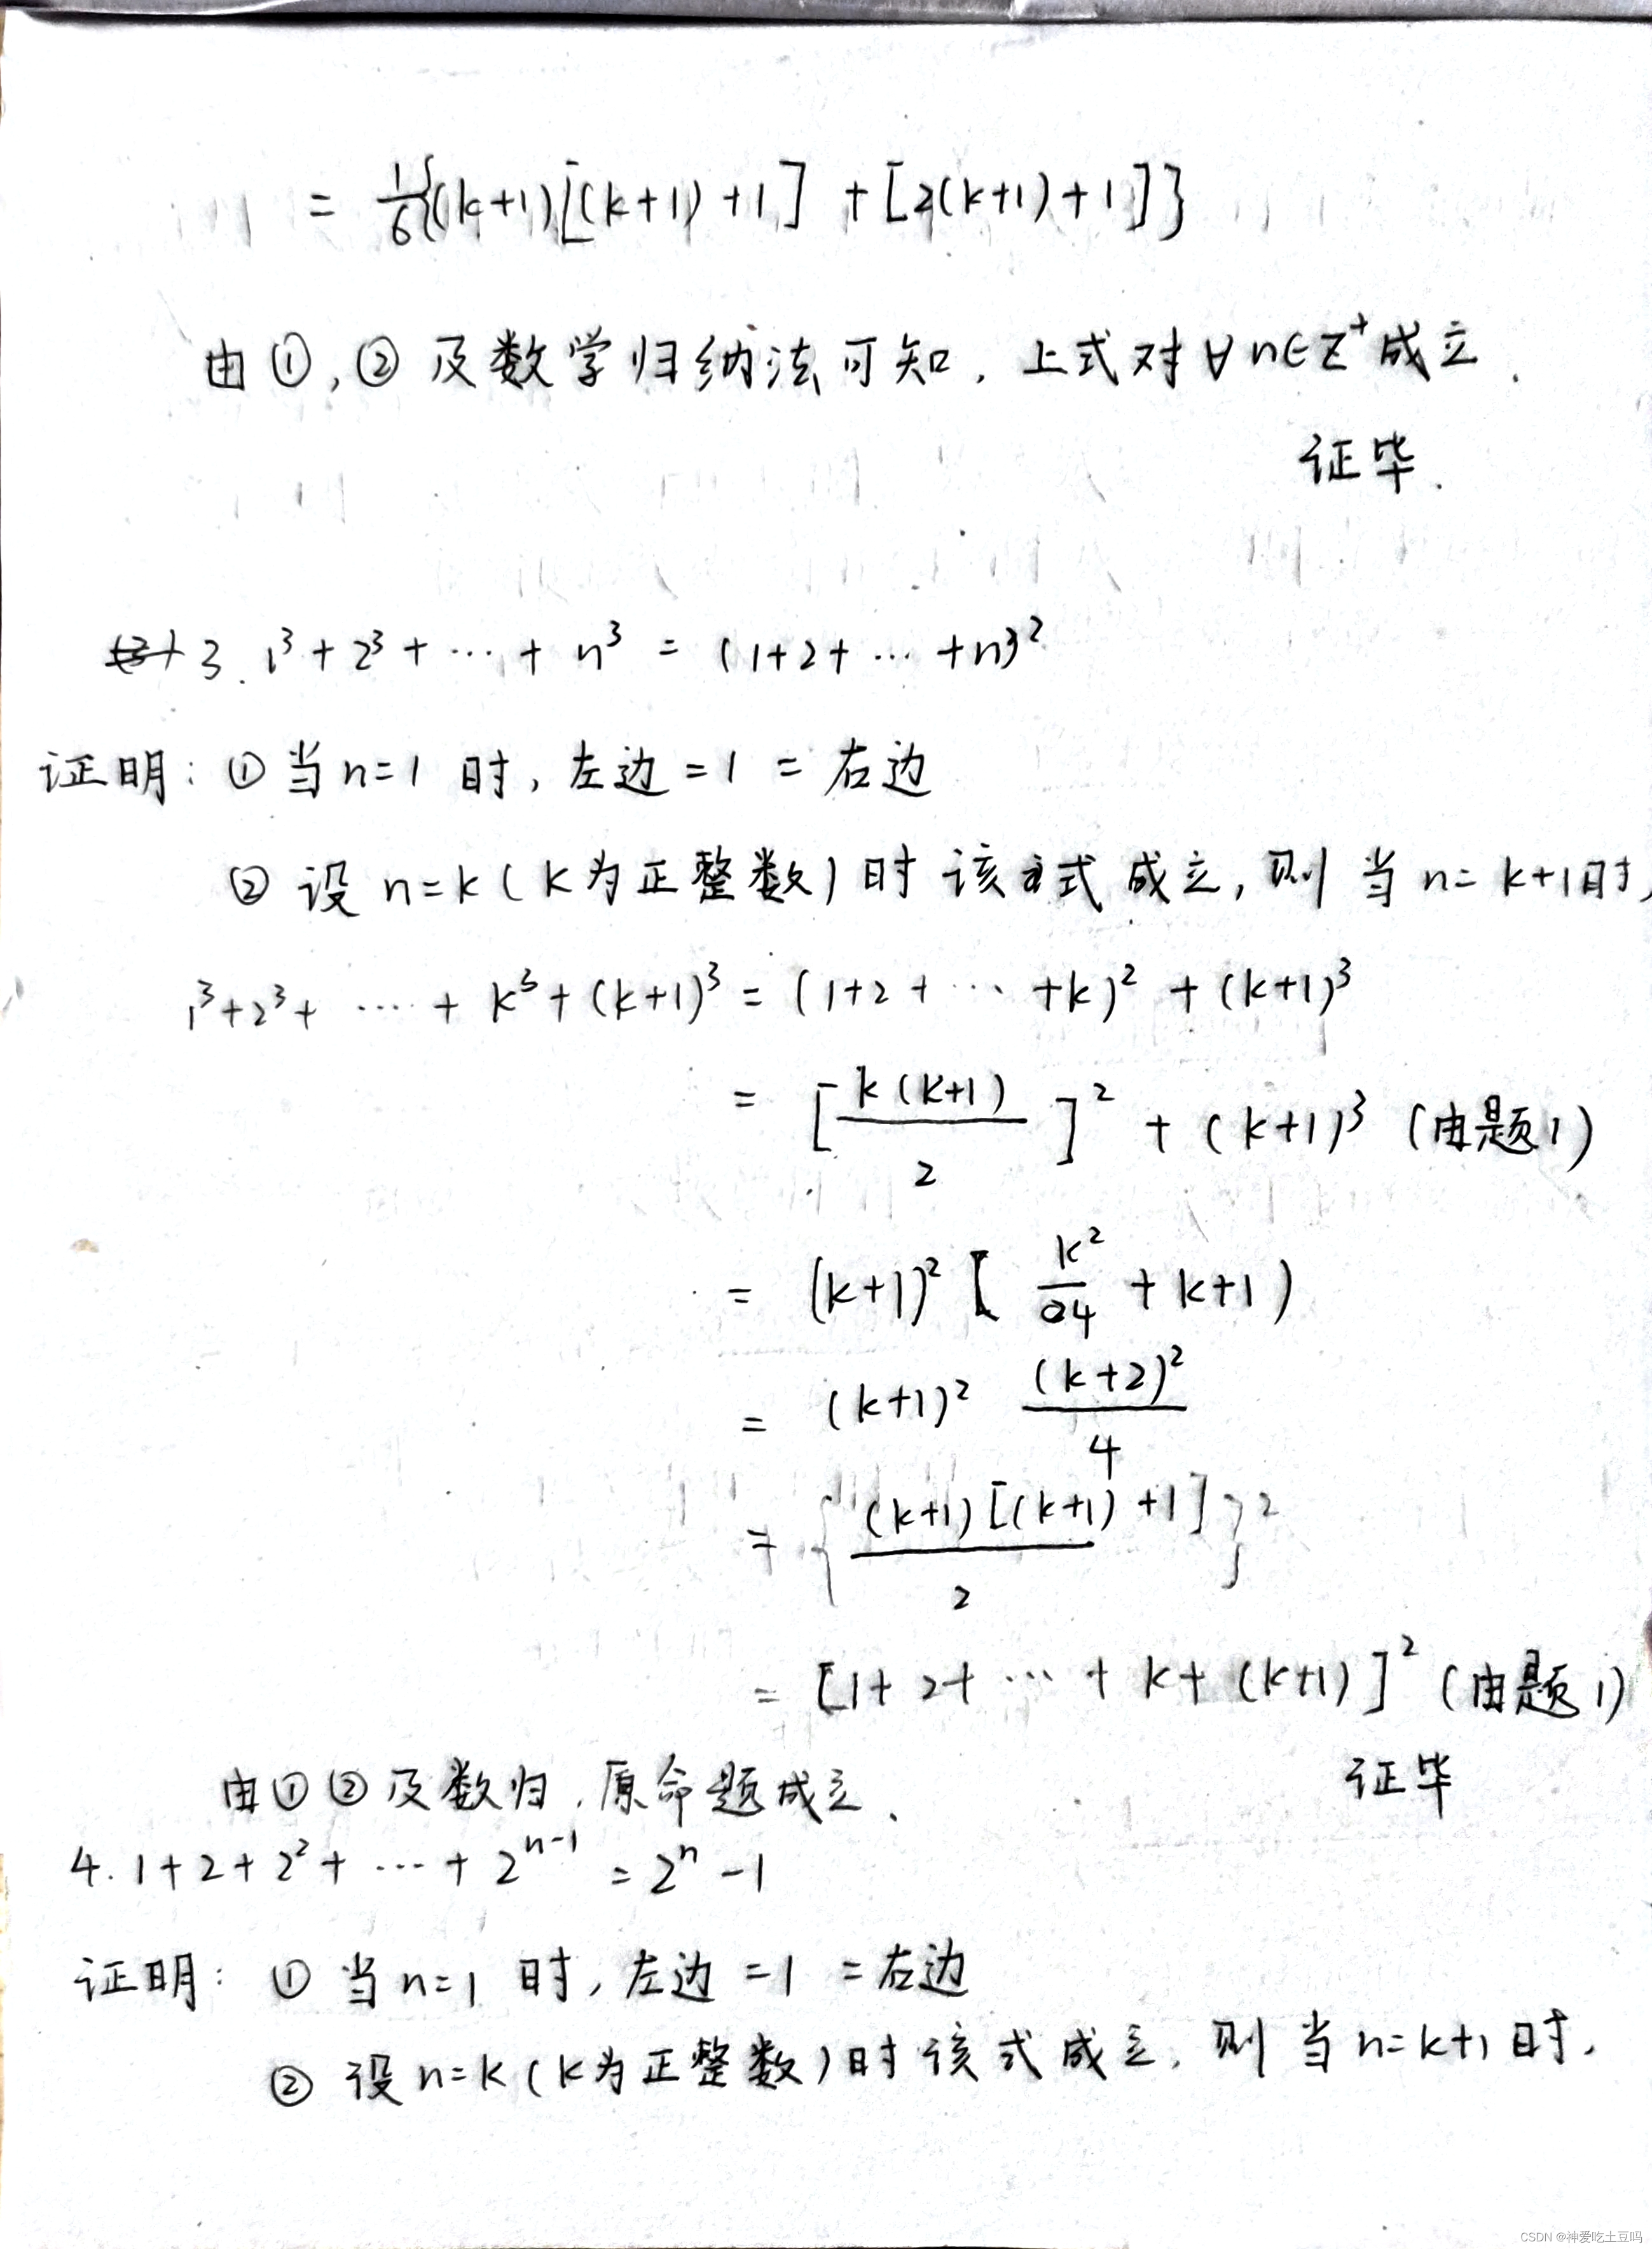 = 1/6{(k+1)[(k+1)+1] + [2(k+1)+1]}
由①,②及数学归纳法可知,上式对∀n∈Z⁺成立.
证毕.
3. 1³+2³+ ⋯ + n³ = (1+2+ ⋯ +n)²
证明: ①当n=1 时,左边=1 = 右边
② 设 n=k(k为正整数)时该式成立,则当n=k+1时,
1³+2³+ ⋯⋯ + k³+(k+1)³ = (1+2+ ⋯ +k)² + (k+1)³
= [k(k+1)/2]² + (k+1)³ (由题1)
= (k+1)² [k²/4 + k+1)
= (k+1)² (k+2)²/4
= {(k+1)[(k+1)+1]/2}²
= [1+2+ ⋯ + k+(k+1)]² (由题1)
由①②及数归,原命题成立. 证毕
4. 1+2+2²+ ⋯ + 2ⁿ⁻¹ = 2ⁿ-1
证明: ① 当n=1 时,左边=1 =右边
② 设n=k(k为正整数)时该式成立,则当n=k+1时,
CSDN @神爱吃土豆吗